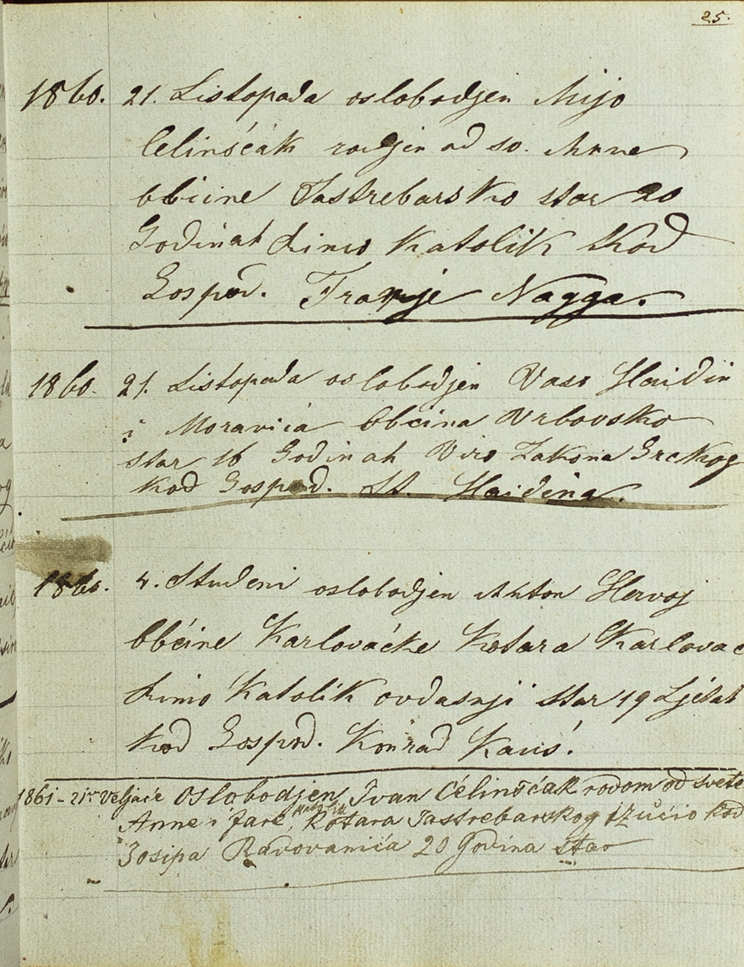 25.
1860. 21. Listopada oslobodjen Mijo
Celinšćák rodjen od sv. Anne
obćine Jastrebarsko star 20
Godinah Rimo Katolik kod
Gospod. Franje Nagga.
1860. 21. Listopada oslobodjen Vaso Haidin
i Moravica obćina Vrbovsko
star 16 Godinah Viro Zakona Grckog
kod Gospod. St. Haidina.
1860. 4. Studeni oslobodjen Anton Hervoj
obćine Karlovačke Kotara Karlovac
Rimo Katolik ovdasnji star 19 Ljetah
kod Gospod. Konrad Kauś.
1861 - 21. Veljače oslobodjen Ivan Célinšćak rodom od svete
Anne i fare kotara Jastrebarskog izučio kod
Josipa Radovanića 20 Godina star